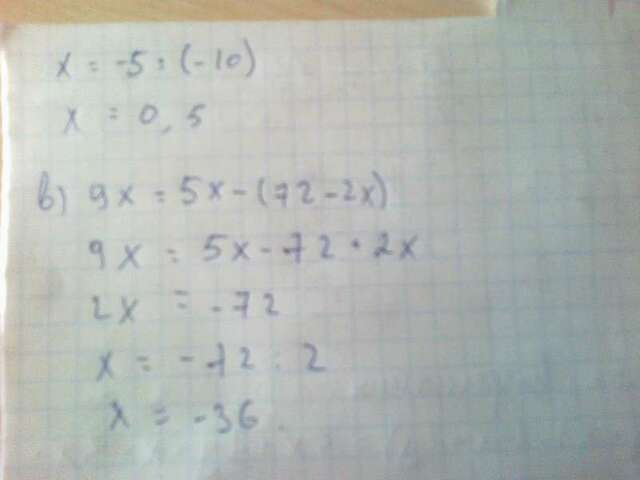 x = -5 : (-10)
x = 0,5
в) 9x = 5x - (72 - 2x)
9x = 5x - 72 + 2x
2x = -72
x = -72 : 2
x = -36.